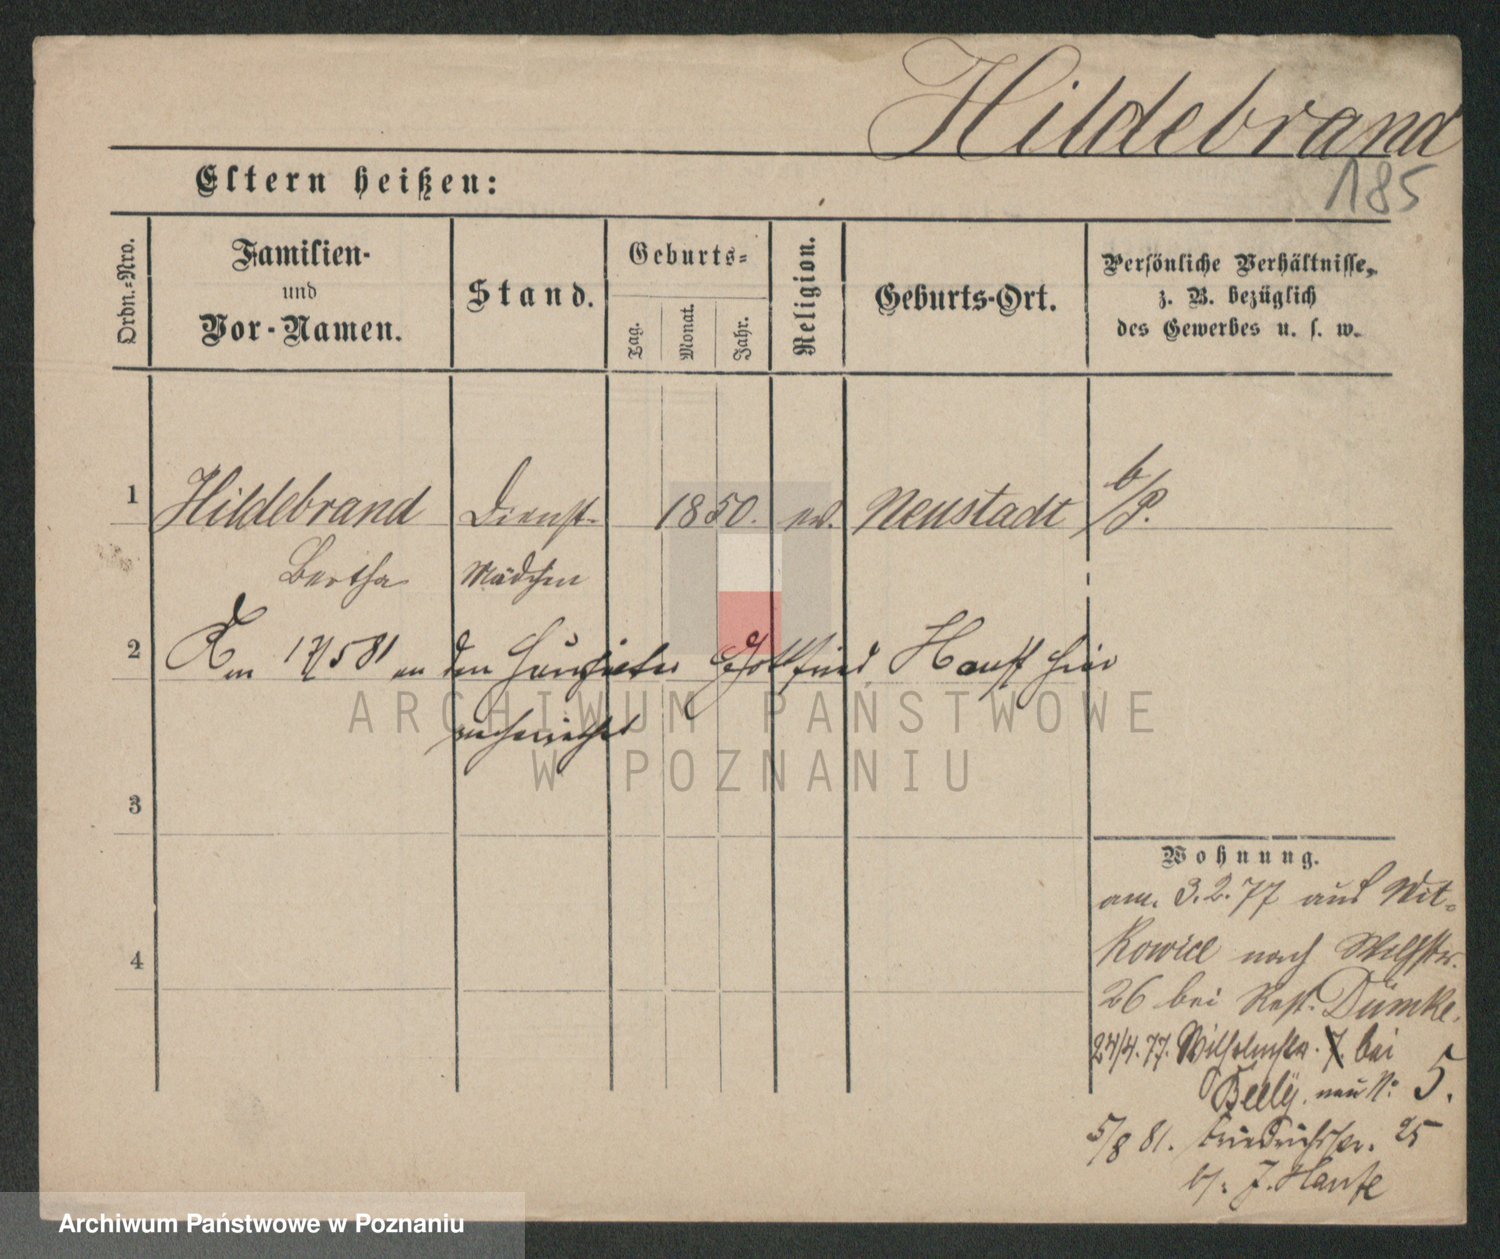 Hildebrand
185
Eltern heißen:
Ordn.-Nro.
Familien-
und
Vor-Namen.
Stand.
Geburts-
Tag.
Monat.
Jahr.
Religion.
Geburts-Ort.
Persönliche Verhältnisse,
z. B. bezüglich
des Gewerbes u. s. w.
1 Hildebrand Dienst- 1850. ev. Neustadt b/P.
Bertha Mädchen
2 Am 17/5 81 an den Gottfried Hauff hier
verheirathet
ARCHIWUM PAŃSTWOWE
W POZNANIU
3
4
Wohnung.
am. 3.2.77 aus Wit-
kowice nach
26 bei Rest. Dümke.
24/4.77. Wilhelmstr. 7. bei
Beely. neu N: 5.
5/8 81. Friedrichstr. 25
b/. J. Haufe
Archiwum Państwowe w Poznaniu